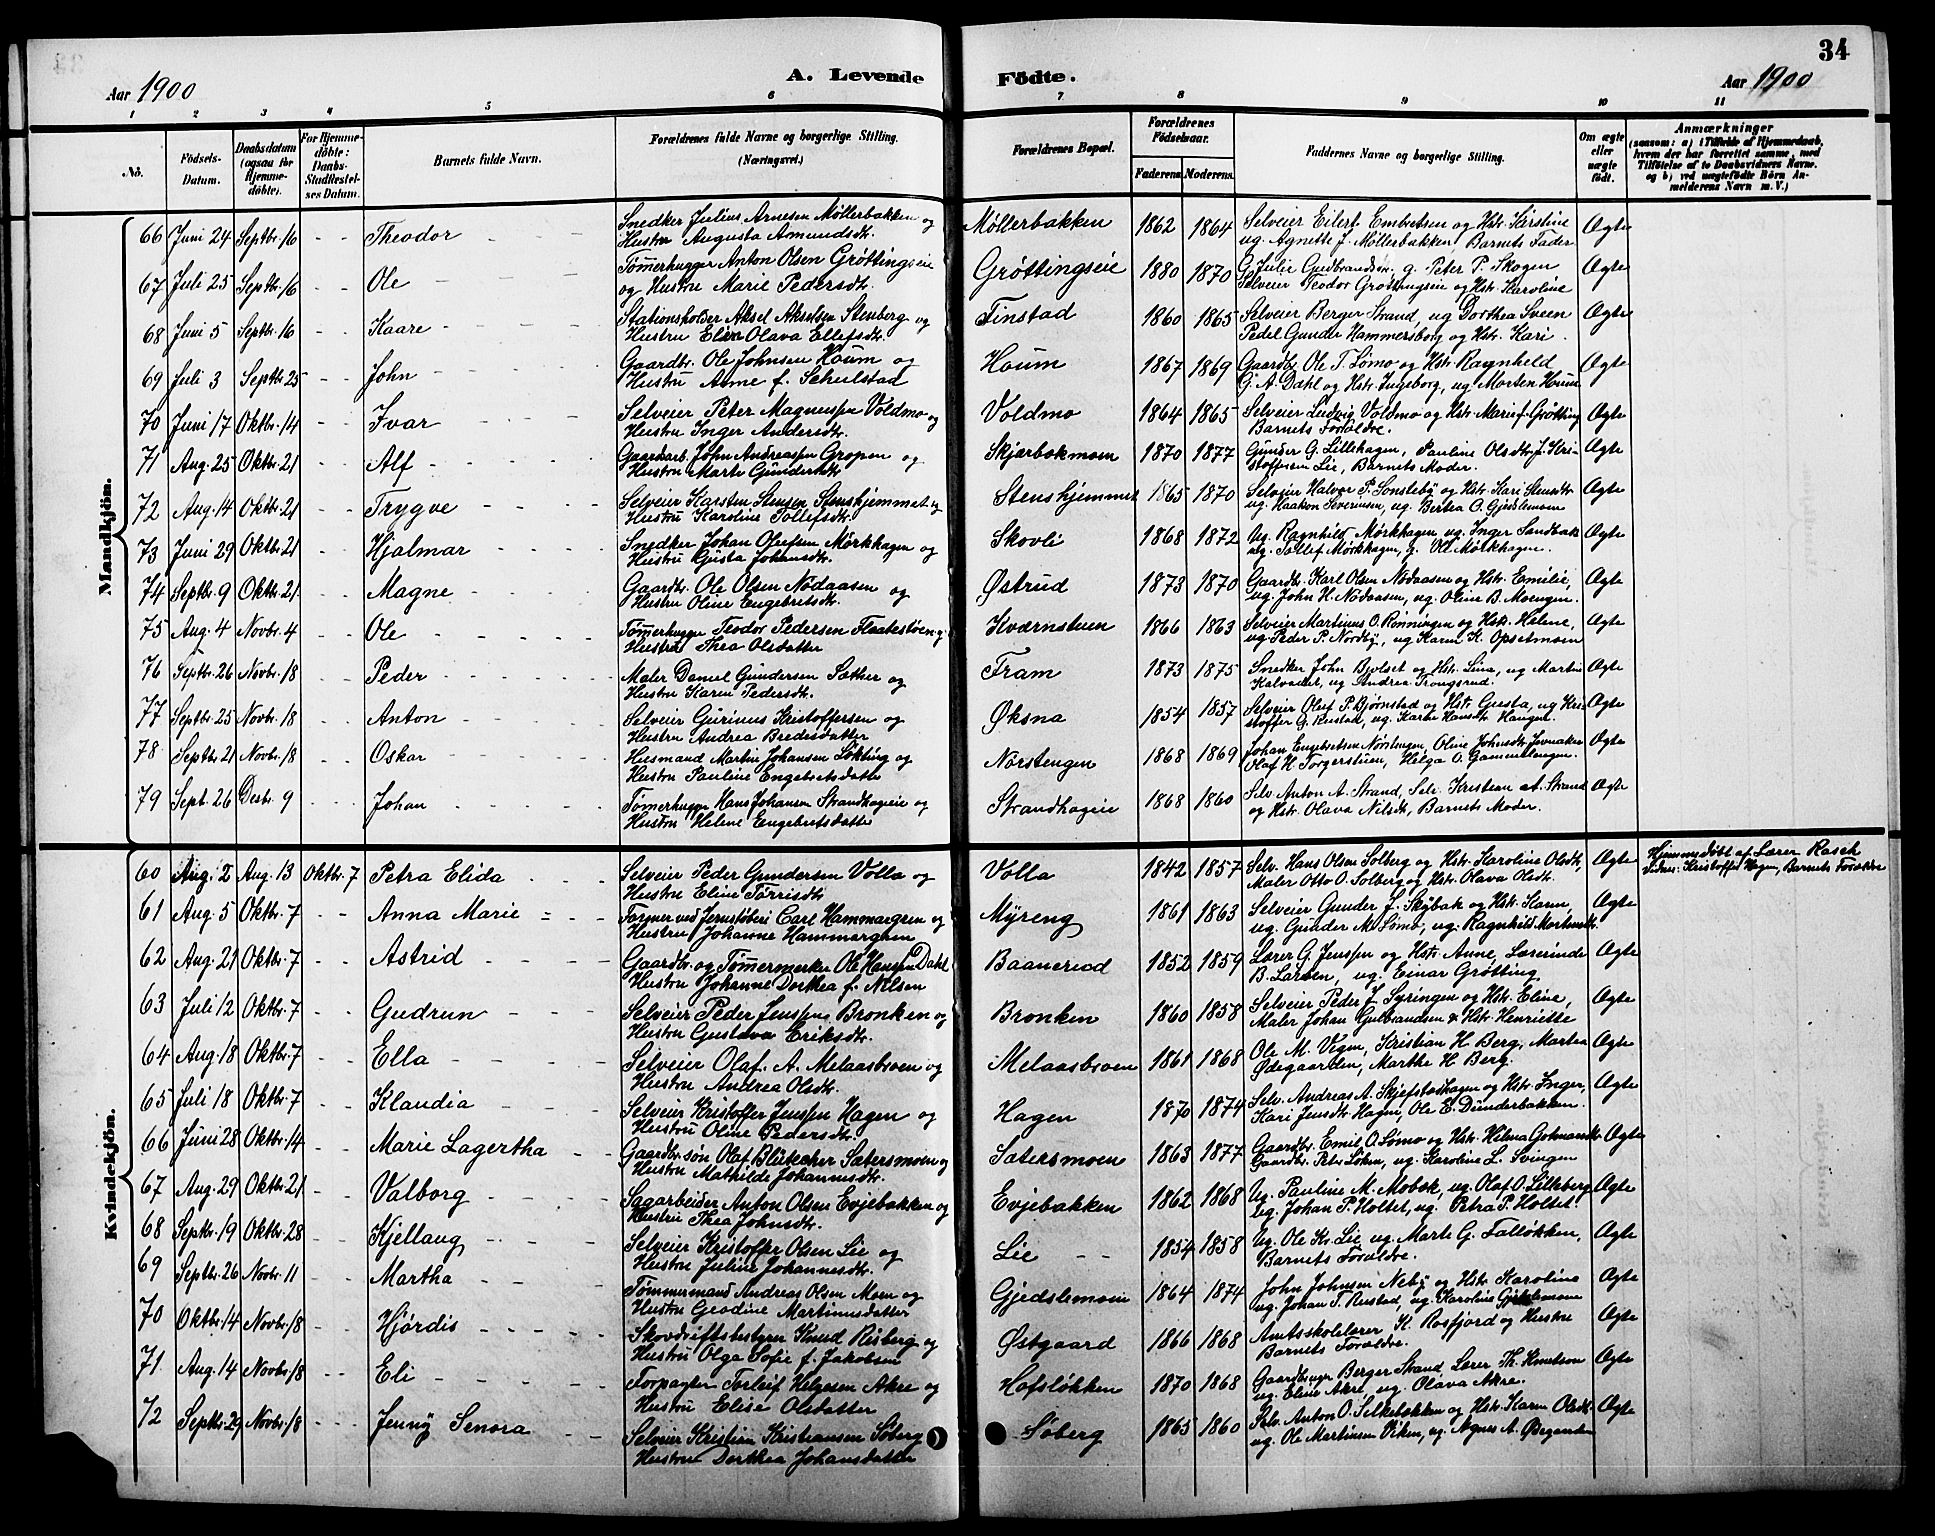 34
Aar 1900
A. Levende
Födte.
Aar 1900
1 2 3 4 5 6 7 8 9 10 11
No.
Födsels-
Datum.
Daabsdatum
(ogsaa for
Hjemme-
döbte).
For Hjemme-
döbte:
Daabs-
Stadfæstel-
ses Datum.
Barnets fulde Navn.
Forældrenes fulde Navne og borgerlige Stilling.
(Næringsvei.)
Forældrenes Bopæl.
Forældrenes
Födselsaar.
Faderens. Moderens.
Faddernes Navne og borgerlige Stilling.
Om ægte
eller
uægte
født.
Anmærkninger
(saasom: a) i Tilfælde af Hjemmedaab,
hvem der har forrettet samme, med
Tilföielse af to Daabsvidners Navne.
og b) ved uægtefödte Börn An-
melderens Navn m. V.)
Mandkjön.
66 Juni 24 Septbr. 16 - - Theodor - - - Snedker Julius Arnesen Møllerbakken og Møllerbakken 1862 1864 Selveier Eilert Embretsen og Hstr. Kirstine Ægte
Hustru Augusta Amundsdtr. ug. Agnette f. Møllerbakken Barnets Fader
67 Juli 25 Septbr. 16 - - Ole - - - Tømerhugger Anton Olsen Grøttingseie Grøttingseie 1880 1870 G. Julie Gudbrandsdr. g. Peter P. Skogen Ægte
og Hustru Marie Pedersdt. Selveier Teodor Grøttingseie og Hstr. Karoline
68 Juni 5 Septbr. 16 - - Kaare - - - Stationsholder Aksel Akselsen Stenberg og Finstad 1860 1865 Selveier Berger Strand, ug Dorthea Sveen Ægte
Hustru Eline Olava Ellefsdt. Pedel Gunder Hammersborg og Hstr. Kari.
69 Juli 3 Septbr. 25 - - John - - - Gaardbr. Ole Johnsen Houm og Houm 1867 1869 Gaardbr. Ole T. Lømo og Hstr. Ragnhild Ægte
Hustru Anne f. Schulstad G. A. Dahl og Hstr. Ingeborg, ug Morten Houm
70 Juni 17 Oktbr. 14 - - Ivar - - - Selveier Peter Magnussen Voldmo og Voldmo 1864 1865 Selveier Ludvig Voldmo og Hstr. Marie f. Grøtting Ægte
Hustru Inger Andersdt. Barnets Forældre.
71 Aug. 25 Oktbr. 21 - - Alf - - - Gaardarb. John Andreassen Gropen og Skjærbækmoen 1870 1877 Gunder G. Lillehagen, Pauline Olsdt. f. Kri- Ægte
Hustru Marte Gundersdt. stoffersen Lie, Barnets Moder.
72 Aug. 14 Oktbr. 21 - - Trygve - - - Selveier Karsten Stensen Stenshjemmet og Stenshjemmet 1865 1870 Selveier Halvor P. Sonsteby og Hstr. Kari Stensdt. Ægte
Hustru Karoline Tollefsdt. ug. Haakon Severinsen, ug. Berthea O. Gjedslemoen
73 Juni 29 Oktbr. 21 - - Hjalmar - - - Snedker Johan Olufsen Mørkhagen og Skovli 1868 1872 Ug. Ragnhild Mørkhagen, ug. Inger Sandbæk Ægte
Hustru Gusta Johansdt. ug. Tollef Mørkhagen, g. Ole Mørkhagen.
74 Septbr. 9 Oktbr. 21 - - Magne - - - Gaardbr. Ole Olsen Nødaasen og Østrud 1873 1870 Gaardbr. Karl Olsen Nødaasen og Hstr. Emilie, Ægte
Hustru Oline Engebretsdt. ug. John H. Nødaasen, ug. Oline B. Moengen.
75 Aug. 4 Novbr. 4 - - Ole - - - Tømerhugger Teodor Pedersen Flaatestøen og Kværnstuen 1866 1863 Selveier Martinus O. Rønningen og Hstr. Helene, Ægte
Hustru Thea Olsdatter ug. Peder P. Nordby, ug Karen K. Opsetmoen
76 Septbr. 26 Novbr. 18 - - Peder - - - Maler Daniel Gundersen Sæther og Fram 1873 1875 Snedker John Bjølset og Hstr. Lina, ug Martin Ægte
Hustru Karen Pedersdt. Kalvadet, ug Andrea Trongsrud.
77 Septbr. 25 Novbr. 18 - - Anton - - - Selveier Gurinus Kristoffersen og Øksna 1854 1857 Selveier Oluf P. Bjørnstad og Hstr. Gusta, ug Kri- Ægte
Hustru Andrea Bredesdatter stoffer G. Rustad, ug. Karen Hansdt. Haugen.
78 Septbr. 21 Novbr. 18 - - Oskar - - - Husmand Martin Johansen Løkting og Nørstengen 1868 1869 Johan Engebretsen Nørstengen, Oline Johnsdt. Jevnaker Ægte
Hustru Pauline Engebretsdatter Olaf H. Torgerstuen, Helga O. Gammelengen.
79 Sept. 26 Desbr. 9 - - Johan - - - Tømerhugger Hans Johansen Strandhageie og Strandhageie 1868 1860 Selv. Anton A. Strand, Selv. Kristian at. Strand Ægte
Hustru Helene Engebretsdatter og Hstr. Olava Nilsdt., Barnets Moder.
Kvindekjön.
60 Aug. 2 Aug. 13 Oktbr. 7 Petra Elida - - Selveier Peder Gundersen Volla og Volla 1842 1857 Selv. Hans Olsen Solberg og Hstr. Karoline Olsdt., Ægte Hjemmedøbt af Lærer Rasch
Hustru Eline Tørrisdt. Maler Otto O. Solberg og Hstr. Olava Olsdt. Vidner: Kristoffer Hagen, Barnets Forældre
61 Aug. 5 Oktbr. 7 - - Anna Marie - - Formerved Jernstøberi Carl Hammargren og Myreng 1861 1863 Selveier Gunder f. Skybak og Hstr. Karen Ægte
Hustru Johanne Hammargren ug. Gunder M. Lømo, ug. Ragnhild Mortensdt.
62 Aug. 21 Oktbr. 7 - - Astrid - - - Gaardbr. og Tømermerker Ole Hansen Dahl Baanerud 1852 1859 Lærer G. Jenssen og Hstr. Anne, Lærerinde Ægte
Hustru Johanne Dorthea f. Nilsen B. Larsen, ug. Einar Grøtting
63 Juli 12 Oktbr. 7 - - Gudrun - - - Selveier Peder Jenssen Bronken og Bronken 1860 1858 Selveier Peder J. Syringen og Hstr. Eline, Ægte
Hustru Gustava Eriksdt. Maler Johan Gulbrandsen & Hstr. Henriette
64 Aug. 18 Oktbr. 7 - - Ella - - - Selveier Olaf. A. Melaasbroen og Melaasbroen 1861 1868 Ole M. Vigen, Kristian H. Berg, Martea Ægte
Hustru Andrea Olsdt. Ødegaarden, Marthe H. Berg.
65 Juli 18 Oktbr. 7 - - Klaudia - - - Selveier Kristoffer Jenssen Hagen og Hagen 1870 1874 Selv. Andreas A. Skjefstadhagen og Hstr. Inger, Ægte
Hustru Oline Pedersdt. Kari Jensdt. Hagen, Ole E. Dunderbakken.
66 Juni 28 Oktbr. 14 - - Marie Lagertha - - Gaardbr.søn Olaf Blütecher Sætersmoen og Sætersmoen 1863 1877 Gaardbr. Emil O. Lømo og Hstr. Helena Ægte
Hustru Mathilde Johannesdt. Gaardbr. Peter Løken, ug. Karoline L. Svingen
67 Aug. 29 Oktbr. 21 - - Valborg - - - Sagarbeider Anton Olsen Evjebakken og Evjebakken 1862 1868 Ug. Pauline M. Mobæk, ug. Olaf O. Lilleberg Ægte
Hustru Thea Johnsdt. Ug. Johan P. Holtet, ug. Petra P. Holtet.
68 Septbr. 19 Oktbr. 28 - - Kjellaug - - - Selveier Kristoffer Olsen Lie og Lie - - 1854 1858 Ug. Ole Kr. Lie, ug Marte G. Falløkken, Ægte
Hustru Juline Johannesdt. Barnets Forældre.
69 Septbr. 26 Novbr. 11 - - Martha - - - Tømmermand Andreas Olsen Moen og Gjedslemoen 1864 1874 John Johnsen Neby og Hstr. Karoline Ægte
Hustru Geodine Martinusdatter ug. Johan T. Rustad, ug. Karoline Gjedslemoen
70 Oktbr. 14 Novbr. 18 - - Hjørdis - - - Skovdriftsbestyrer Knud Risberg og Østgaard 1866 1868 Amtsskolelærer K. Rosfjord og Hustru Ægte
Hustru Olga Sofie f. Jakobsen Barnets Forældre.
71 Aug. 14 Novbr. 18 - - Eli - - - Forpagter Torleif Helgesen Akre og Hofsløkken 1870 1868 Gaardbruger Berger Strand, Lærer Th. Knutson Ægte
Hustru Elise Olsdatter ug. Eline Akre, ug. Olava Akre.
72 Septbr. 29 Novbr. 18 - - Jenny Senora - - Selveier Kristian Kristiansen Søberg Søberg 1865 1860 Selv. Anton O. Silkebækken og Hstr. Karen Olsdt. Ægte
Hustru Dorthea Johansdatter ug. Ole Martinsen Viken, ug. Agnes A. Ødegaarden